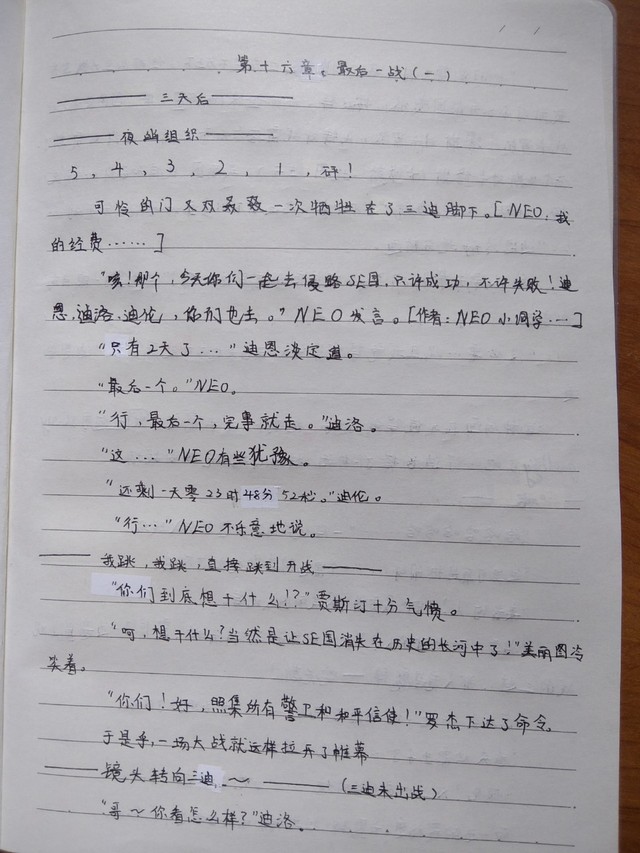 第十六章：最后一战（一）
—— 三天后 ——
—— 夜幽组织 ——
5，4，3，2，1，砰！
可怜的门又双叒叕一次牺牲在了三迪脚下。[NEO：我
的经费……]
"咳！那个，今天你们一起去侵略SE国，只许成功，不许失败！迪
恩，迪洛，迪伦，你们也去。"NEO发言。[作者：NEO小同学…]
"只有2天了…"迪恩淡定道。
"最后一个。"NEO。
"行，最后一个，完事就走。"迪洛。
"这…"NEO有些犹豫。
"还剩一天零23时48分52秒。"迪伦。
"行…"NEO不乐意地说。
—— 我跳，我跳，直接跳到开战 ——
"你们到底想干什么!?"贾斯汀十分气愤。
"呵，想干什么？当然是让SE国消失在历史的长河中了！"美丽图冷
笑着。
"你们！好，照集所有警卫和和平信使！"罗杰下达了命令。
于是乎，一场大战就这样拉开了帷幕
—— 镜头转向三迪～ ——（三迪未出战）
"哥～你看怎么样？"迪洛。